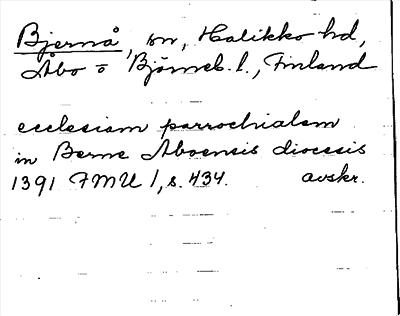 Bjernå, sn, Halikko hd,
Åbo o Björneb. l., Finland
ecclesiam parrochialem
in Berne Aboensis diocesis
1391 FMU 1, s. 434. avskr.